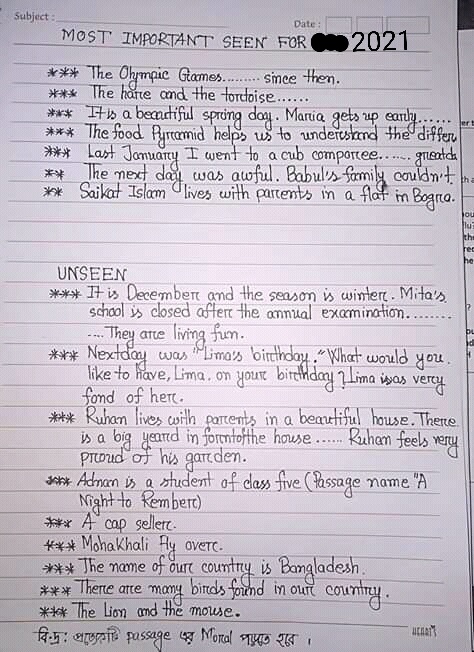 Subject :
Date :
MOST IMPORTANT SEEN FOR 2021
*** The Olympic Games......... since then.
*** The hare and the tortoise......
*** It is a beautiful spring day. Maria gets up early......
*** The food Pyramid helps us to understand the differ
*** Last January I went to a cub comporee....... greatch
** The next day was awful. Babul's family couldn't.
** Saikat Islam lives with parents in a flat in Bogra.
UNSEEN
*** It is December and the season is winter. Mita's
school is closed after the annual examination.........
.... They are living fun.
*** Nextday was "Lima's birthday." What would you
like to have, Lima. on your birthday? Lima was very
fond of her.
*** Ruhan lives with parents in a beautiful house. There
is a big yeard in forntofthe house ...... Ruhan feels very
proud of his garden.
*** Adnan is a student of class five (Passage name "A
Night to Rember)
*** A cap seller.
*** Mohakhali fly over.
*** The name of our country is Bangladesh.
*** There are many birds found in our country.
*** The Lion and the mouse.
বি:দ্র: প্রত্যেকটি passage এর Moral পড়তে হবে ।